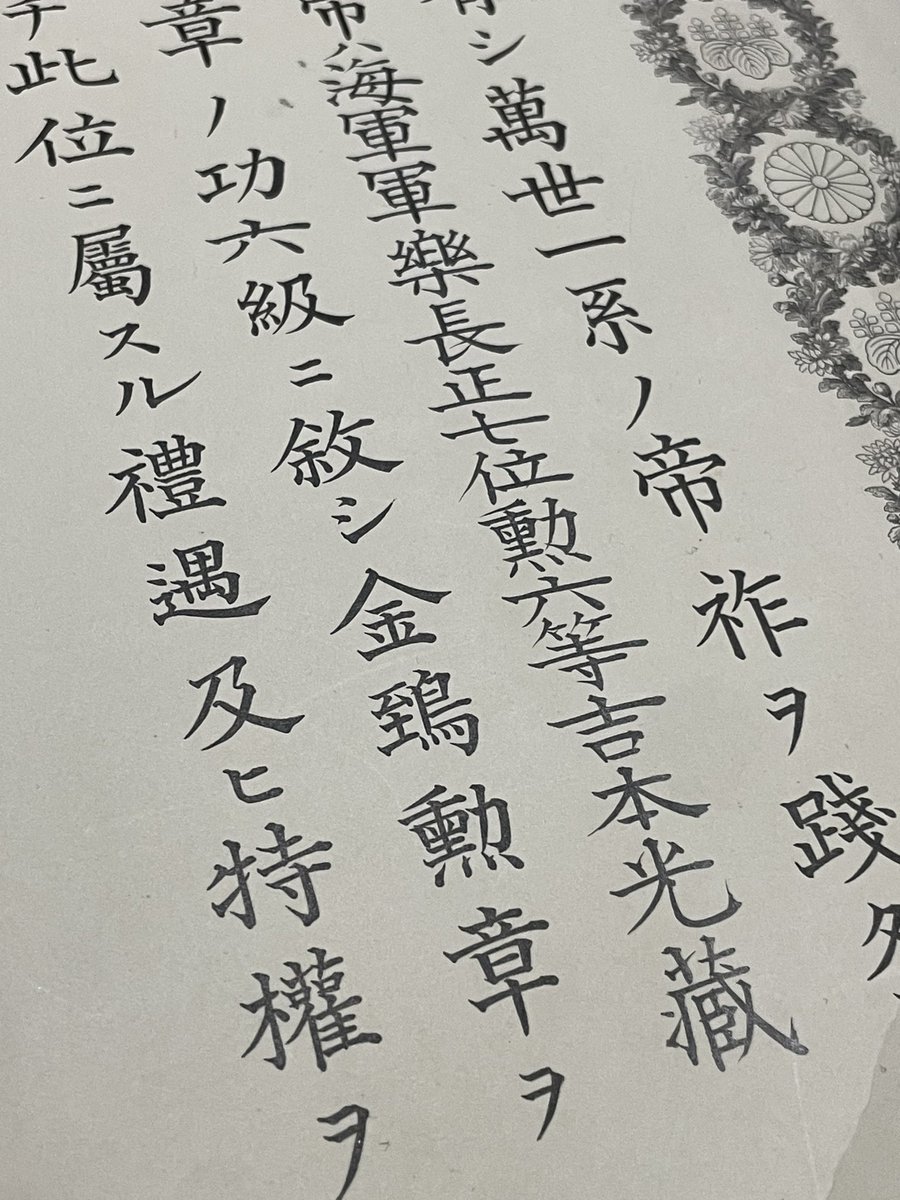 有シ萬世一系ノ帝祚ヲ踐タ
帝ハ海軍軍樂長正七位勲六等吉本光藏
章ノ功六級ニ敘シ金鵄勲章ヲ
此位ニ屬スル禮遇及ヒ特權ヲ